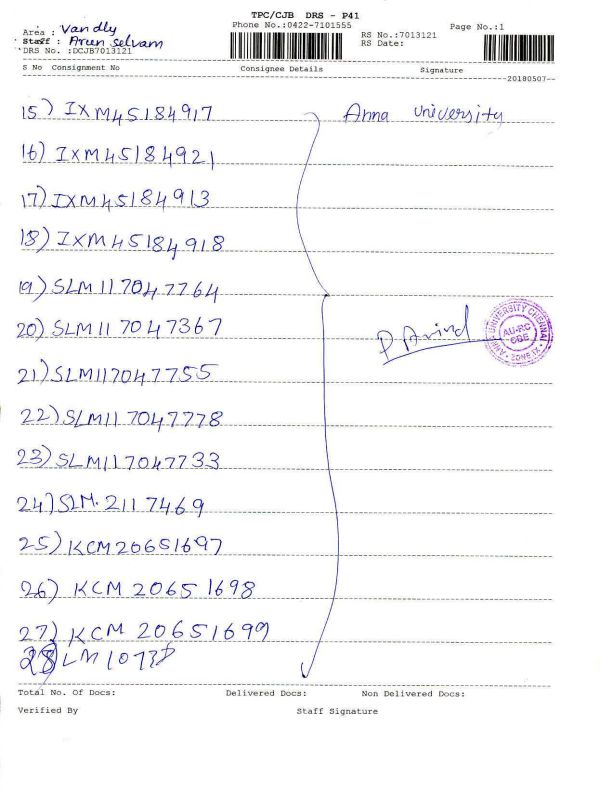 TPC/CJB DRS - P41
Phone No.:0422-7101555
Page No.:1
Area : Vandly
Staff : Arun selvam
DRS No. :DCJB7013121
RS No.:7013121
RS Date:
S No Consignment No Consignee Details Signature
20180507
15) IXM45184917 Anna University
16) IXM45184921
17) IXM45184913
18) IXM45184918
19) SLM117047764
20) SLM117047367
P. Arvind
ANNA UNIVERSITY CHENNAI
AU-RC
CDE
ZONE IX
21) SLM117047755
22) SLM117047778
23) SLM117047733
24) SLM.2117469
25) KCM20651697
26) KCM 20651698
27) KCM 20651699
28) SLM
Total No. Of Docs: Delivered Docs: Non Delivered Docs:
Verified By Staff Signature